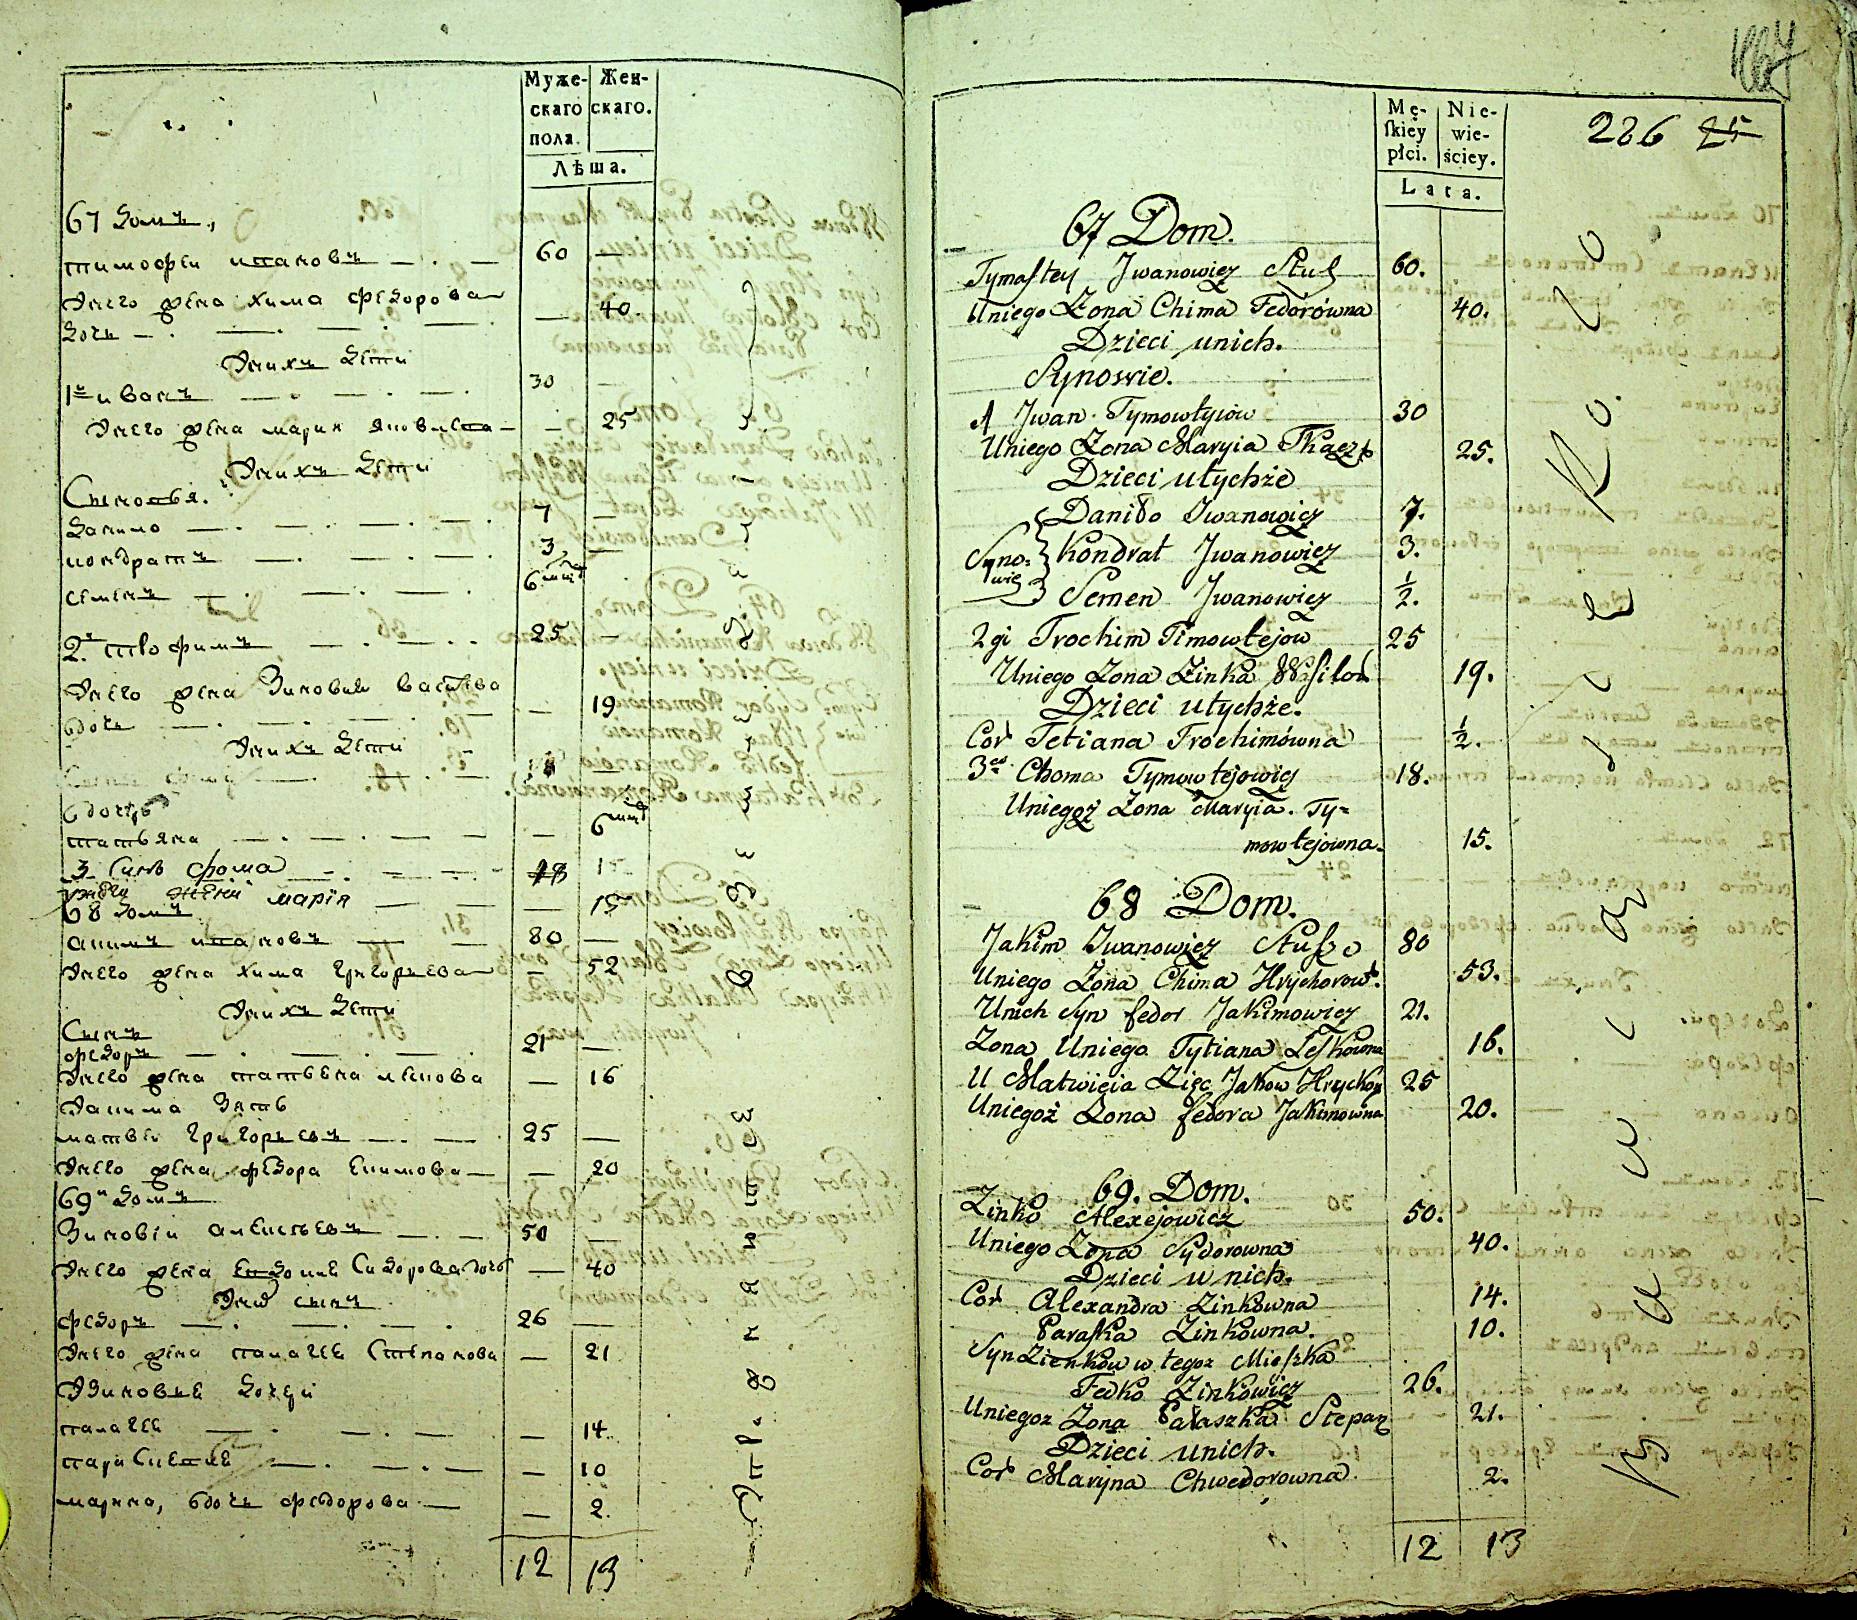 Муже-
скаго
пола.
Жен-
скаго.
Лѣта.
67 домъ,
тимофеи ивановъ — . — 60 —
Унего жена хима федорова
дочь — . — . — . — — 40.
Унихъ дети
1й иванъ — . — . — . 30 —
Унего жена мария яковлева — — 25
Унихъ дети
Сыновья.
данило — . — . — . 7 —
кондратъ — . — . — . 3 —
семенъ — . — . — . 6
2й трофимъ — . — . . 25 —
Унего жена Зиновия василева
дочь — . — . — . — — 19
Унихъ дети
6дочерь
татьяна — . — . — . — — 6
3 Сынъ фома — . — . — . 18
Унего жена мария — — — 15
68 домъ
акимъ ивановъ — — 80 —
Унего жена хима григорьева — — 52
Унихъ дети
Сынъ
федоръ — . — . — . 21 —
Унего жена татьяна — 16
Уакима Зять
матвеи григорьевъ — . — 25 —
Унего жена федора екимова — — 20
69й домъ
Зиновіи алексеевъ — . — 50 —
Унего жена Сидорова дочь — 40
сынъ
федоръ — . — . — . 26 —
Унего жена палагея Степанова — 21
Узиновье дочери
палагея — . — . — — 14.
— . — . — — 10
марина, 6дочь федорова — — 2.
12 13
Mę-
skiey
płci.
Nie-
wie-
ściey.
Lata.
226 25
67 Dom.
Tymaftey Jwanowicz 60.
Uniego Zona Chima Fedorówna 40.
Dzieci unich.
Synowie.
1 Jwan Tymowtyiow 30
Uniego Zona Maryia Tkacz 25.
Dzieci utychże
Daniło Jwanowicz 7.
Syno=
wie
Kondrat Jwanowicz 3.
Semen Jwanowicz ½.
2gi Trochim Timowtejow 25
Uniego Zona Zinka Wasilow 19.
Dzieci utychże.
Cor Tetiana Trochimówna ½.
3ci Choma Tymowtejowicz 18.
Uniegoż Zona Maryia Ty=
mowtejowna. 15.
68 Dom.
Jakim Jwanowicz 80
Uniego Zona Chima Hrychorow. 53.
Unich Syn fedor Jakimowicz 21.
Zona Uniego Tytiana Leskowna 16.
U Matwieia Zięc Jakow Hryckow 25
Uniegoż Zona fedora Jakimowna 20.
69. Dom.
Zinko Alexejowicz 50.
Uniego Zona Sydorowna 40.
Dzieci unich.
Cor Alexandra Zinkowna 14.
Paraska Zinkowna. 10.
Syn Zienkow w tegoz Mieszka
Fedko Zinkowicz 26.
Uniegoz Zona Pałaszka Stepan 21.
Dzieci unich.
Cor Maryna Chwedorowna 2.
12 13